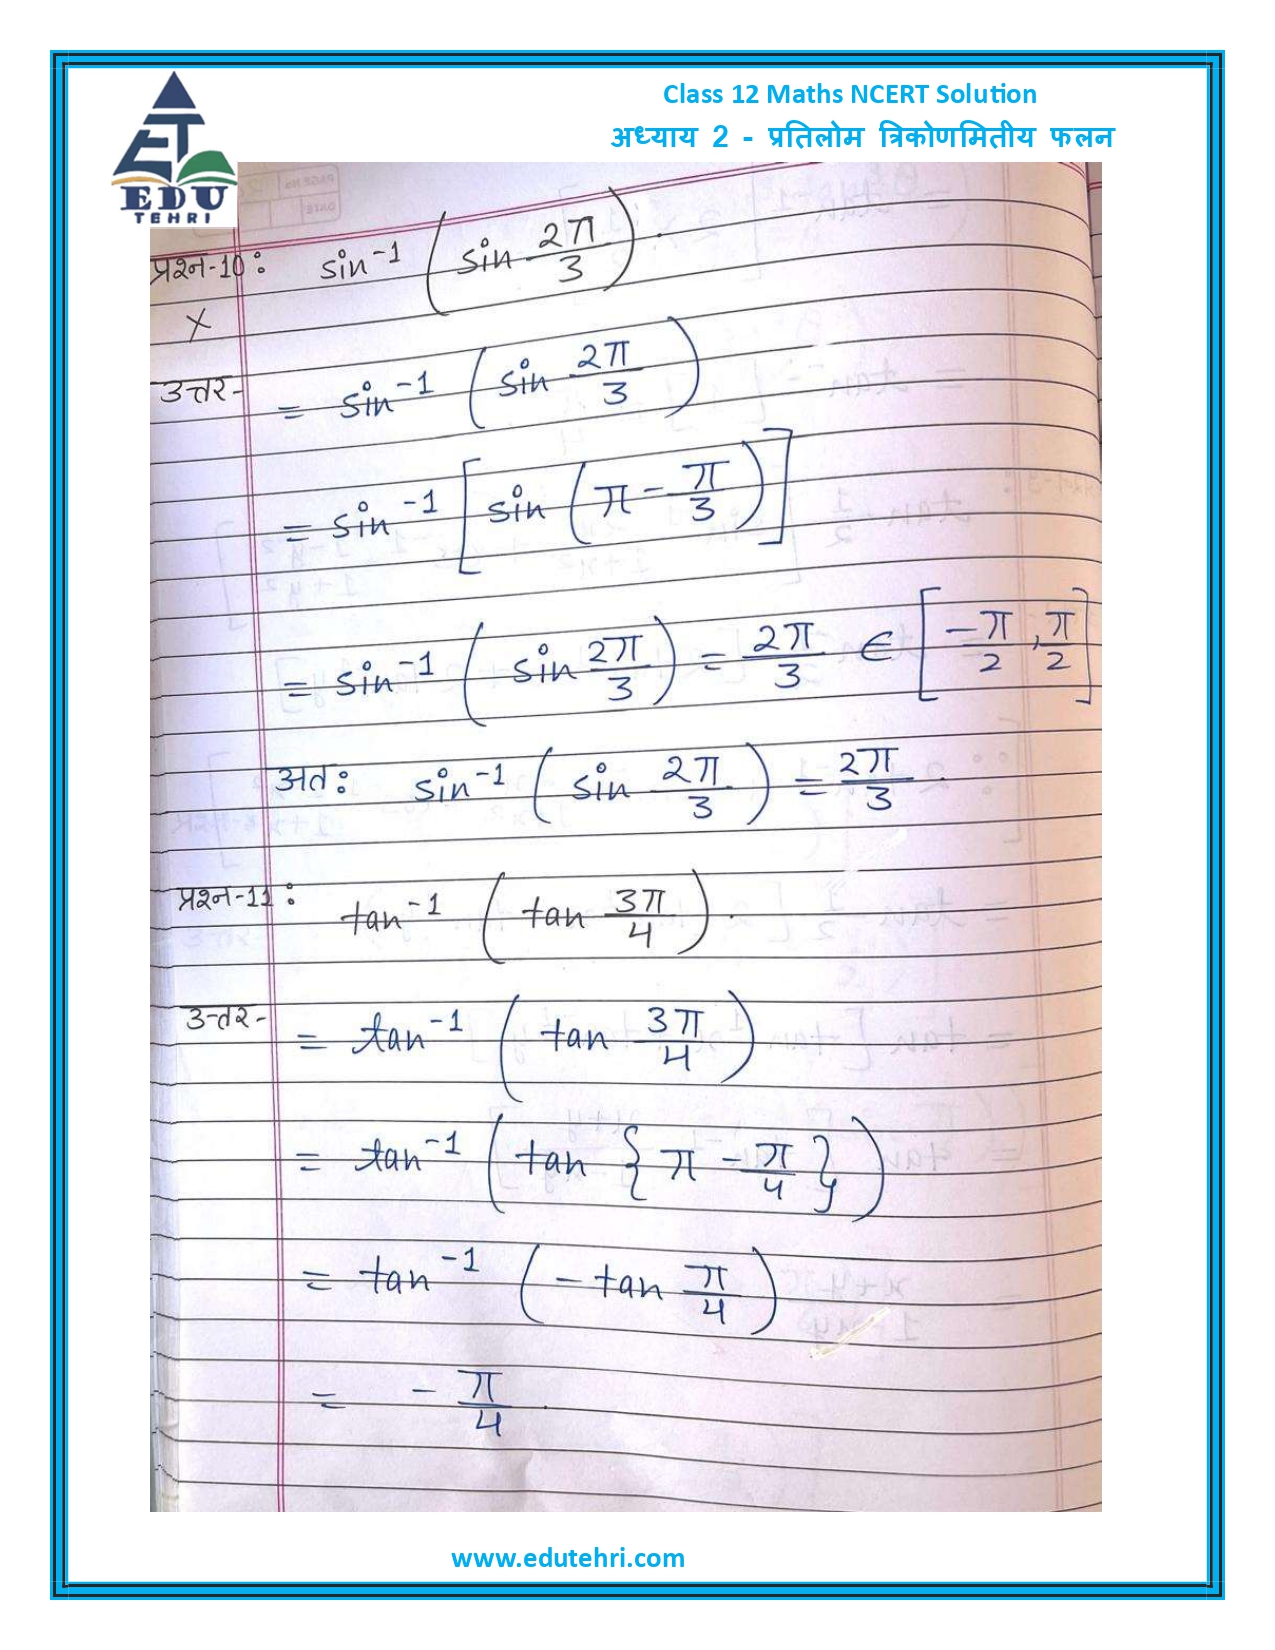 Class 12 Maths NCERT Solution
अध्याय 2 - प्रतिलोम त्रिकोणमितीय फलन
EDU
TEHRI
प्रश्न-10: sin⁻¹ (sin 2π/3).
X
उत्तर- = sin⁻¹ (sin 2π/3)
= sin⁻¹ [sin (π - π/3)]
= sin⁻¹ (sin 2π/3) = 2π/3 ∈ [-π/2, π/2]
अतः sin⁻¹ (sin 2π/3) = 2π/3.
प्रश्न-11: tan⁻¹ (tan 3π/4).
उत्तर- = tan⁻¹ (tan 3π/4)
= tan⁻¹ (tan {π - π/4})
= tan⁻¹ (- tan π/4)
= - π/4.
www.edutehri.com